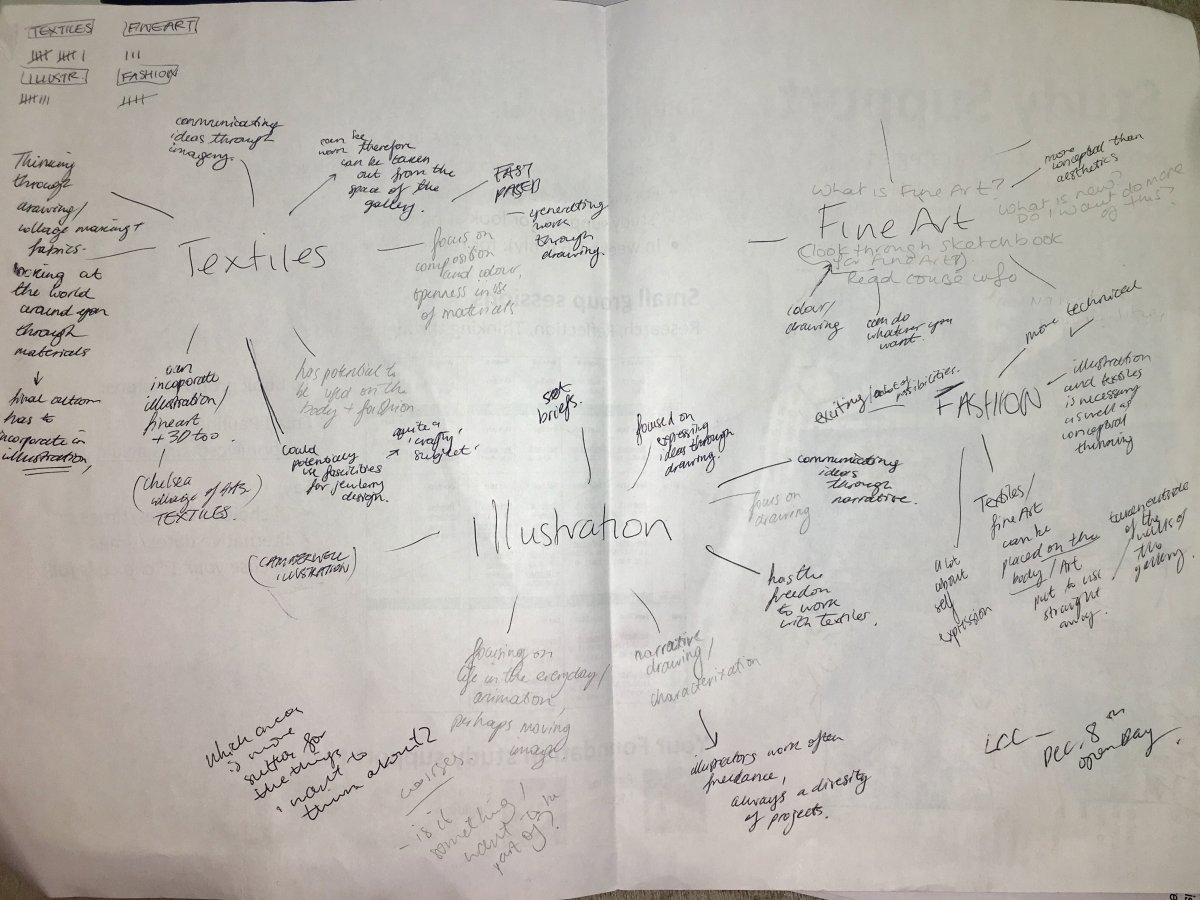 TEXTILES
FINEART
ILLUSTR.
FASHION
communicating
ideas through
imagery.
Thinking
through
drawing/
collage making +
fabrics.
looking at
the world
around you
through
materials
↓
final outcom
has to
incorporate in
illustration,
can be
worn therefore
can be taken
out from the
space of the
gallery.
FAST
PASED
- generating
work
through
drawing.
Textiles
focus on
composition
and colour,
openness in use
of materials
can
incoporate
illustration/
fineart
+ 3D too
(chelsea
collage of Arts
TEXTILES.
could
potentially
use fascilities
for jewlerry
design.
→ quite a
crafty
subject.
has potential to
be used on the
body + fashion
What is Fine Art?
more
conceptual than
aesthetics
What is new?
Do I want do more
of this?
Fine Art
(look through sketchbook
for Fine Art?)
Read course info
colour/
drawing
can do
whatever you
want.
more technical
exciting/
a lot of
possibilities.
FASHION
illustration
and textiles
is necessary
as well as
conceptual
thinking
a lot
about
self
expression
Textiles/
fine Art
can be
placed on the
body/Art
put to use
straight
away.
taken outside
of the
walls of
the
gallery.
set
briefs.
focused on
expressing
ideas through
drawing.
communicating
ideas
through
narrative.
focus on
drawing
Illustration
(CAMBERWELL
ILLUSTRATION)
has the
freedom
to work
with textiles.
focusing on
life in the everyday/
animation,
perhaps moving
image
narrative
drawing/
characterization
↓
illustrators work often
freelance,
always a divesity
of projects.
Which area
is more
suited for
the things
i want to
think about?
courses
- is it
something i
want to be
part of?
LCC -
DEC. 8th
open Day.